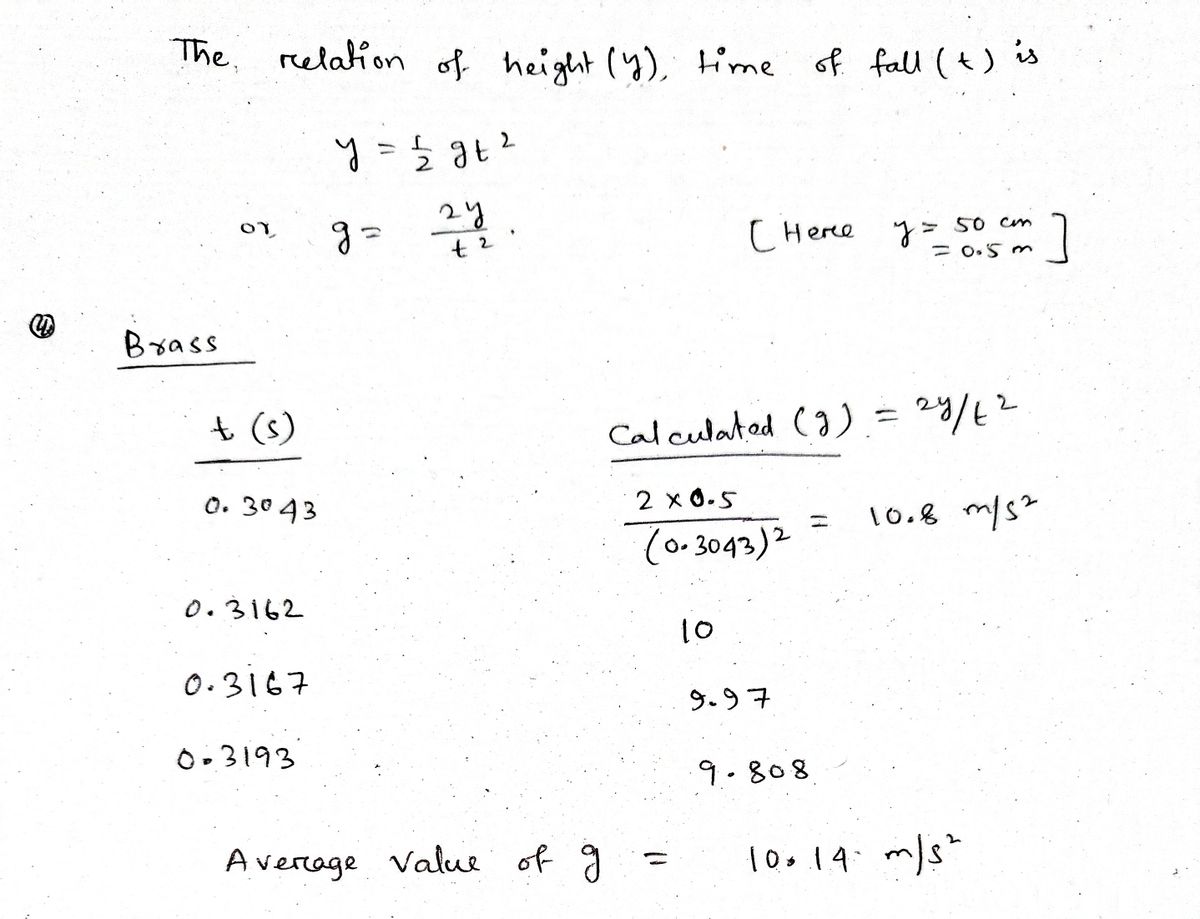 The relation of height (y), time of fall (t) is
y = 1/2 gt²
or g = 2y/t². [Here y = 50 cm
= 0.5 m]
Brass
t (s) Calculated (g) = 2y/t²
0.3043 2 x 0.5/(0.3043)² = 10.8 m/s²
0.3162 10
0.3167 9.97
0.3193 9.808
Average value of g = 10.14 m/s²